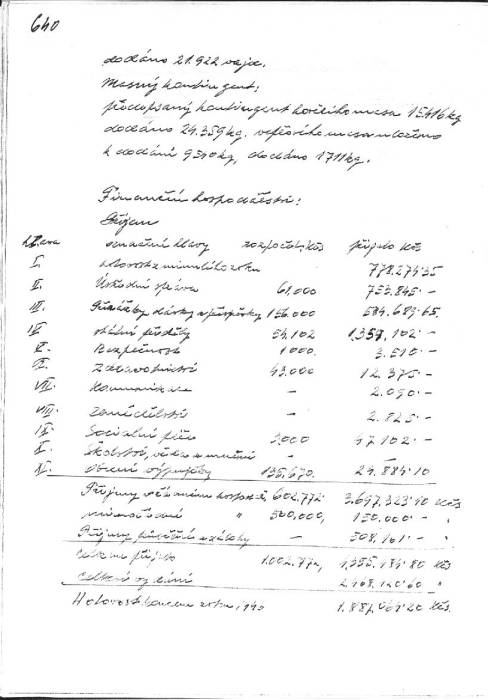 640
dodáno 21.922 vajec.
Masný kontingent:
předepsaný kontingent hovězího masa 15416 kg
dodáno 24.359 kg. vepřového masa uloženo
k dodání 9510 kg, dodáno 1711 kg.
Finanční hospodářství:
Příjem
hlava označení hlavy rozpočet Kčs přijato Kčs
I. hotovost z minulého roku 778.274·35
II. Ústřední správa 61.000 753.845·–
III. Přirážky dávky a příspěvky 156.000 584.689·65
IV. obdělní příděly 54.102 1,357.102·–
V. Bezpečnost 1000. 3.510·–
VI. Zdravotnictví 43.000 12.375·–
VII. Komunikace – 2.090·–
VIII. Zemědělství – 2.825·–
IX. Sociální péče 3.000 47.102·–
X. Školství, věda a umění – –
XI. Obecní výpomoci 135.670. 24.884·10
Příjmy řádného hospod. 602.772· 3.697,323·10 Kčs
mimořádné " 500.000, 150.000·– "
Příjmy, a zálohy – 508.161·– "
Celkem přijato 1.002.772, 1,355.484·80 Kčs
Celkové vydání 2.468.420·60 "
Hotovost koncem roku 1.887.064·20 Kčs.